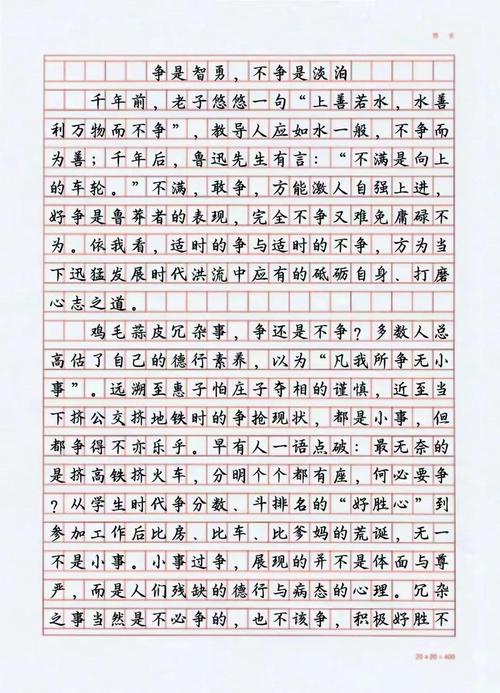 争是智勇，不争是淡泊
千年前，老子悠悠一句“上善若水，水善
利万物而不争”，教导人应如水一般，不争而
为善；千年后，鲁迅先生有言：“不满是向上
的车轮。”不满，敢争，方能激人自强上进，
好争是鲁莽者的表现，完全不争又难免庸碌不
为。依我看，适时的争与适时的不争，方为当
下迅猛发展时代洪流中应有的砥砺自身、打磨
心志之道。
鸡毛蒜皮冗杂事，争还是不争？多数人总
高估了自己的德行素养，以为“凡我所争无小
事”。远溯至惠子怕庄子夺相的谨慎，近至当
下挤公交挤地铁时的争抢现状，都是小事，但
都争得不亦乐乎。早有人一语点破：最无奈的
是挤高铁挤火车，分明个个都有座，何必要争
？从学生时代争分数、斗排名的“好胜心”到
参加工作后比房、比车、比爹妈的荒诞，无一
不是小事。小事过争，展现的并不是体面与尊
严，而是人们残缺的德行与病态的心理。冗杂
之事当然是不必争的，也不该争，积极好胜不
20×20=400